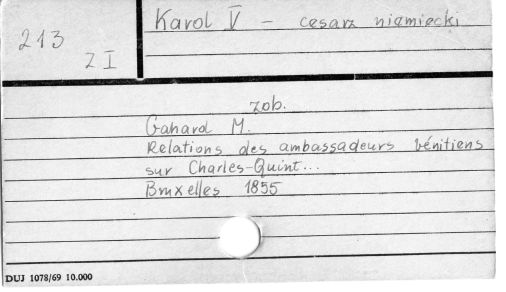 Karol V - cesarz niemiecki
213
Z I
zob.
Gahard M.
Relations des ambassadeurs bénitiens
sur Charles-Quint...
Bruxelles 1855
DUJ 1078/69 10.000